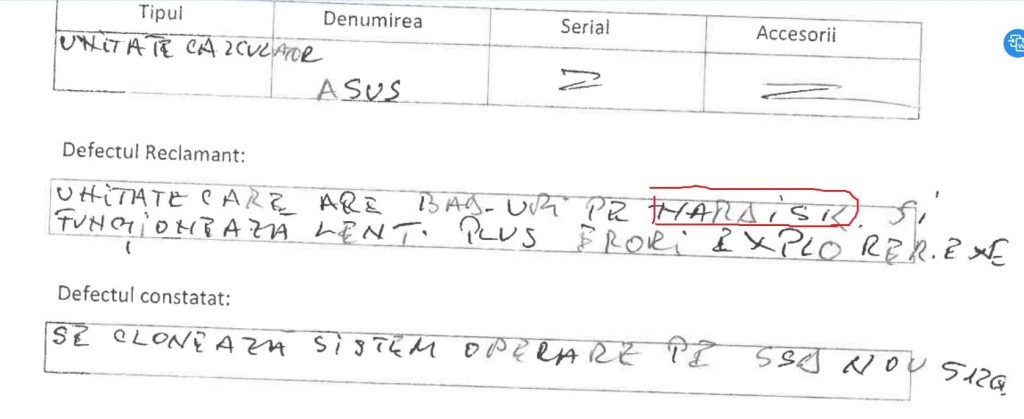 Tipul Denumirea Serial Accesorii
UNITATE CALCULATOR
ASUS
Defectul Reclamant:
UNITATE CARE ARE BAG-URI PE HARDISK. și
FUNCȚIONEAZA LENT. PLUS ERORI EXPLORER.EXE
Defectul constatat:
SE CLONEAZA SISTEM OPERARE PE SSD NOU